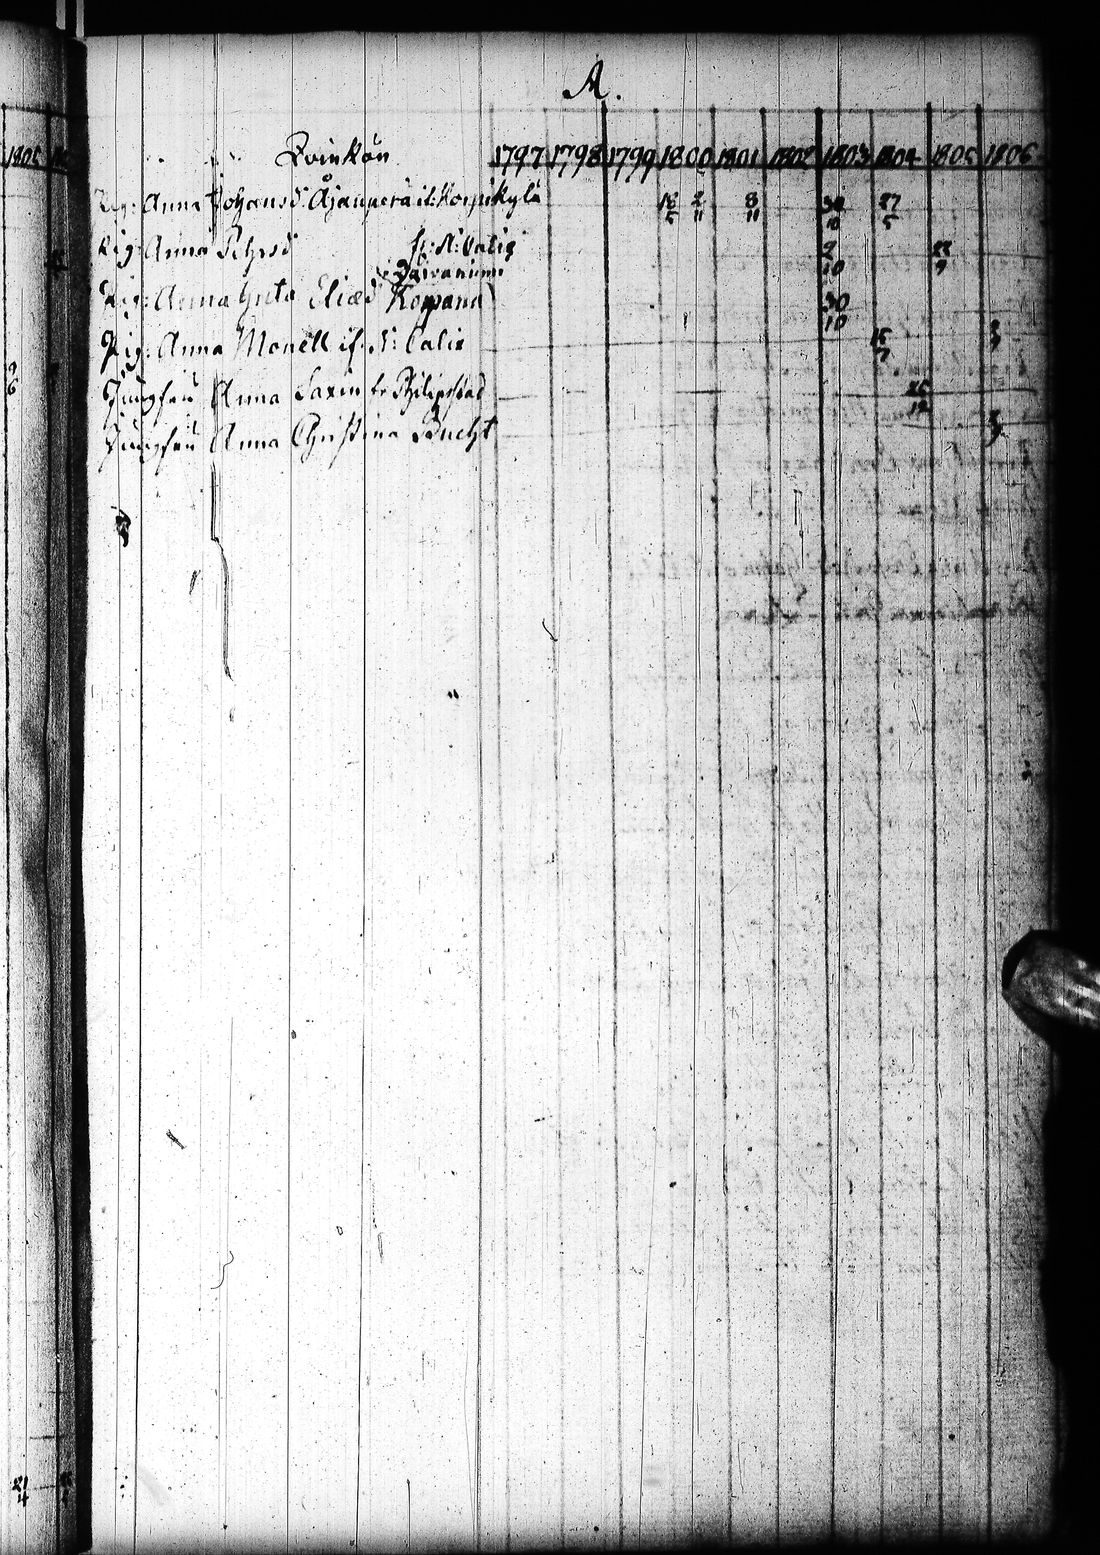 A.
1805
Qvinkön 1797 1798 1799 1800 1801 1802 1803 1804 1805 1806
Pig: Anna Johansd. Äjänperä if. Korpikylä 2/11 8/11 30/10 27/5
Pig: Anna Pehrsd fr: N: Calix 2/10 22/9
Pig: Anna Greta Eliæd Kompana 30/10
Pig: Anna Monell if. N: Calix 15/7
Jungfru Anna Saxen fr Philipstad 12
Jungfru Anna Christina Bucht
21/4